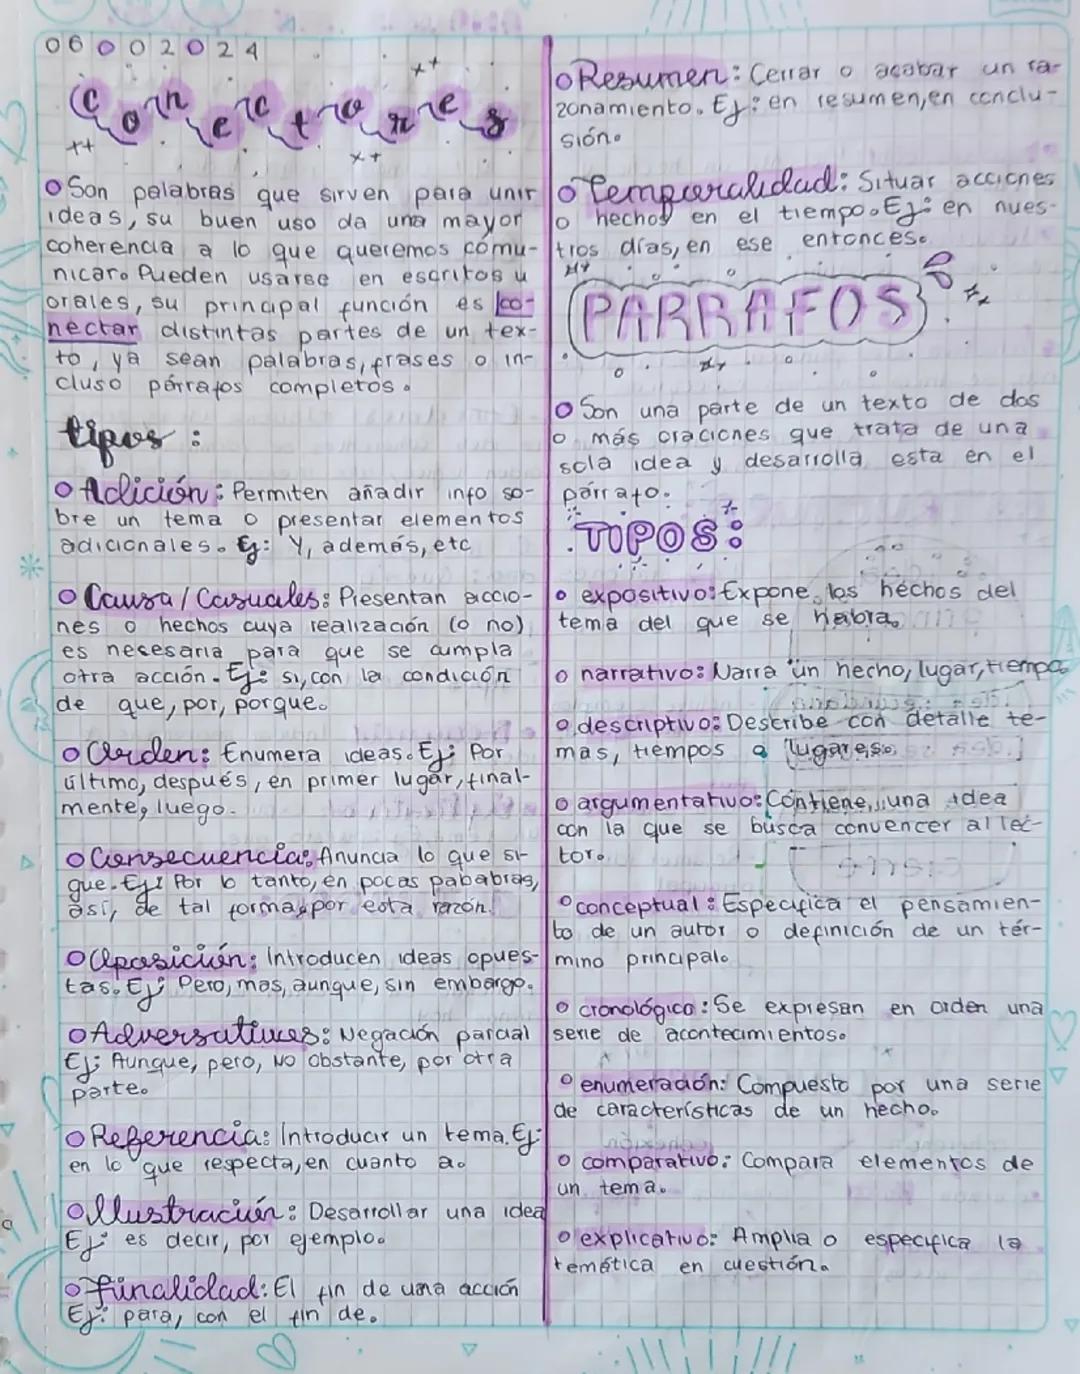 06 002024
Conectores
Son palabras que sirven para unir
ideas, su buen uso da una mayor
coherencia a lo que queremos comu-
nicar. Pueden usarse en escritos u
orales, su principal función es co-
nectar distintas partes de un tex-
to, ya sean palabras, frases o in-
cluso párrafos completos.
tipos:
Adición: Permiten añadir info so-
bre un tema o presentar elementos
adicionales. Ej: Y, además, etc
Causa/Casuales: Presentan accio-
nes o hechos cuya realización (o no)
es necesaria para que se cumpla
otra acción. Ej: si, con la condición
de que, por, porque.
Orden: Enumera ideas. Ej: Por
último, después, en primer lugar, final-
mente, luego.
Consecuencia: Anuncia lo que si-
gue. Ej: Por lo tanto, en pocas pababras,
así, de tal forma, por esta razón.
Oposición: Introducen ideas opues-
tas. Ej: Pero, mas, aunque, sin embargo.
Adversativos: Negación parcial
Ej: Aunque, pero, no obstante, por otra
parte.
Referencia: Introducir un tema. Ej:
en lo que respecta, en cuanto a.
Ilustración: Desarrollar una idea
Ej: es decir, por ejemplo.
finalidad: El fin de una acción
Ej: para, con el fin de.
Resumen: Cerrar o acabar un ra-
zonamiento. Ej: en resumen, en conclu-
sión.
Temporalidad: Situar acciones
o hechos en el tiempo. Ej: en nues-
tros días, en ese entonces.
PARRAFOS
Son una parte de un texto de dos
o más oraciones que trata de una
sola idea y desarrolla esta en el
párrafo.
TIPOS:
expositivo: Expone los hechos del
tema del que se habla.
narrativo: Narra un hecho, lugar, tiempo
descriptivo: Describe con detalle te-
mas, tiempos o lugares.
argumentativo: Contiene una idea
con la que se busca convencer al lec-
tor.
conceptual: Especifica el pensamien-
to de un autor o definición de un tér-
mino principal.
cronológico: Se expresan en orden una
serie de acontecimientos.
enumeración: Compuesto por una serie
de características de un hecho.
comparativo: Compara elementos de
un tema.
explicativo: Amplia o especifica la
temática en cuestión.